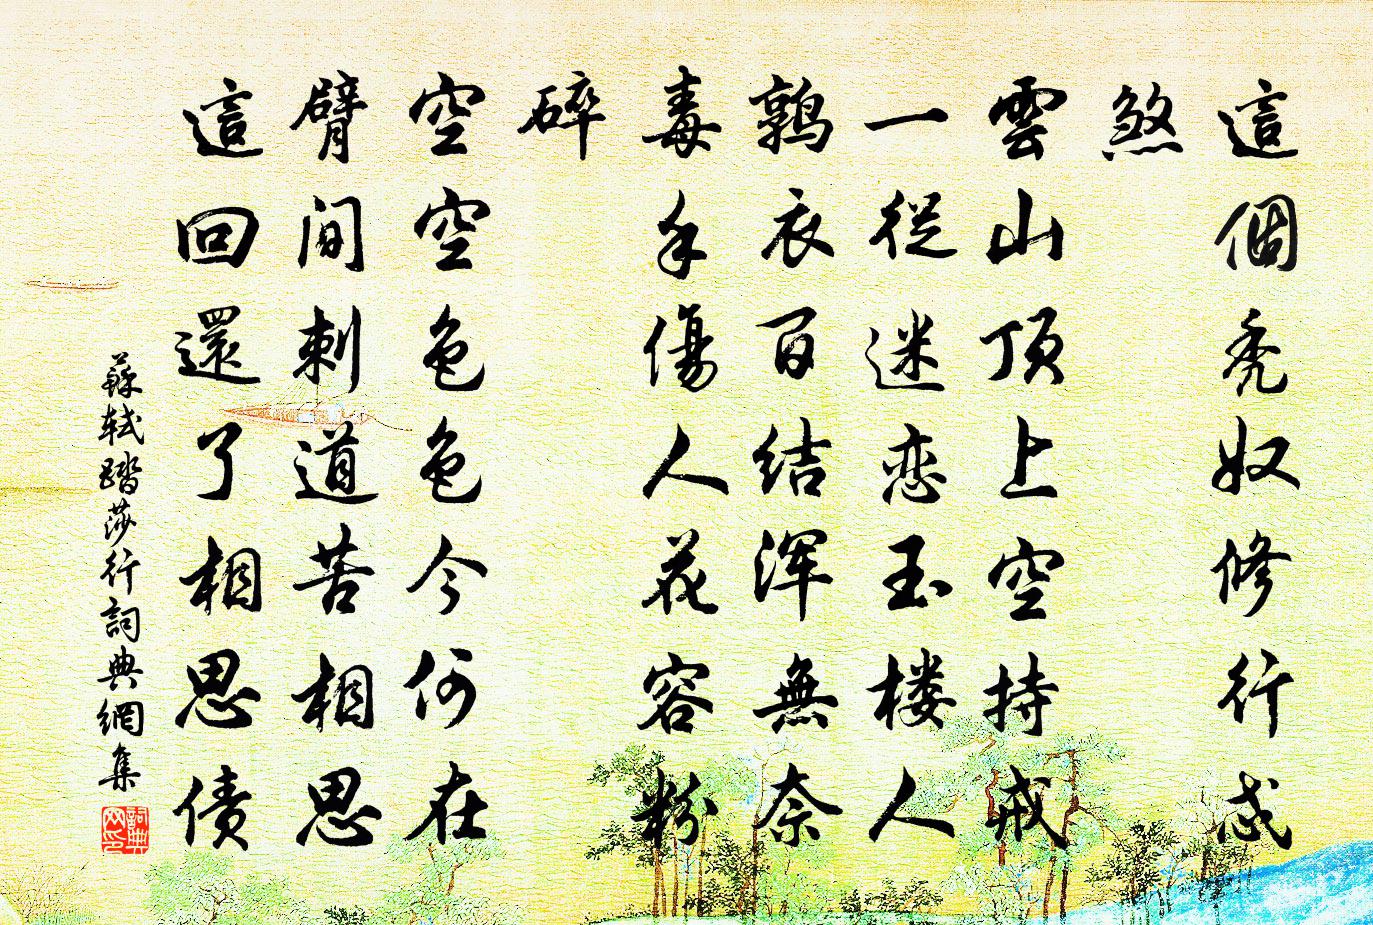 這個秃奴修行忒
煞
雲山顶上空持戒
一從迷恋玉楼人
鶉衣百结浑無奈
毒手傷人花容粉
碎
空空色色今何在
臂间刺道苦相思
這回還了相思债
蘇軾踏莎行詞典網集
詞典网印